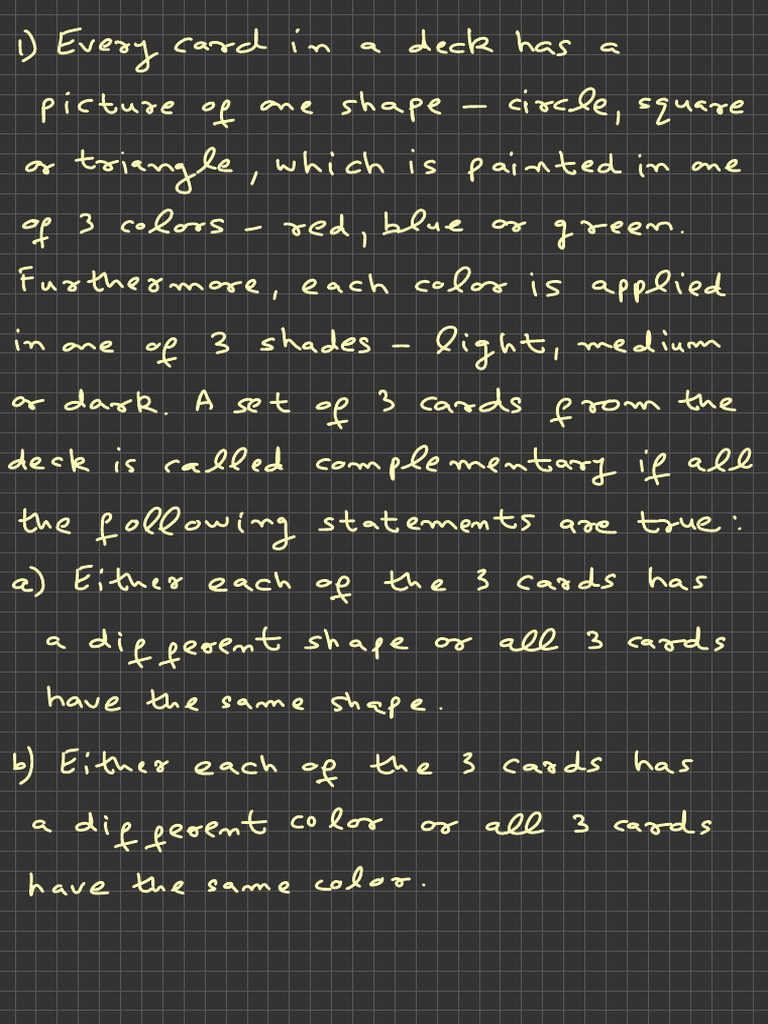 1) Every card in a deck has a
picture of one shape – circle, square
or triangle, which is painted in one
of 3 colors – red, blue or green.
Furthermore, each color is applied
in one of 3 shades – light, medium
or dark. A set of 3 cards from the
deck is called complementary if all
the following statements are true:
a) Either each of the 3 cards has
a different shape or all 3 cards
have the same shape.
b) Either each of the 3 cards has
a different color or all 3 cards
have the same color.